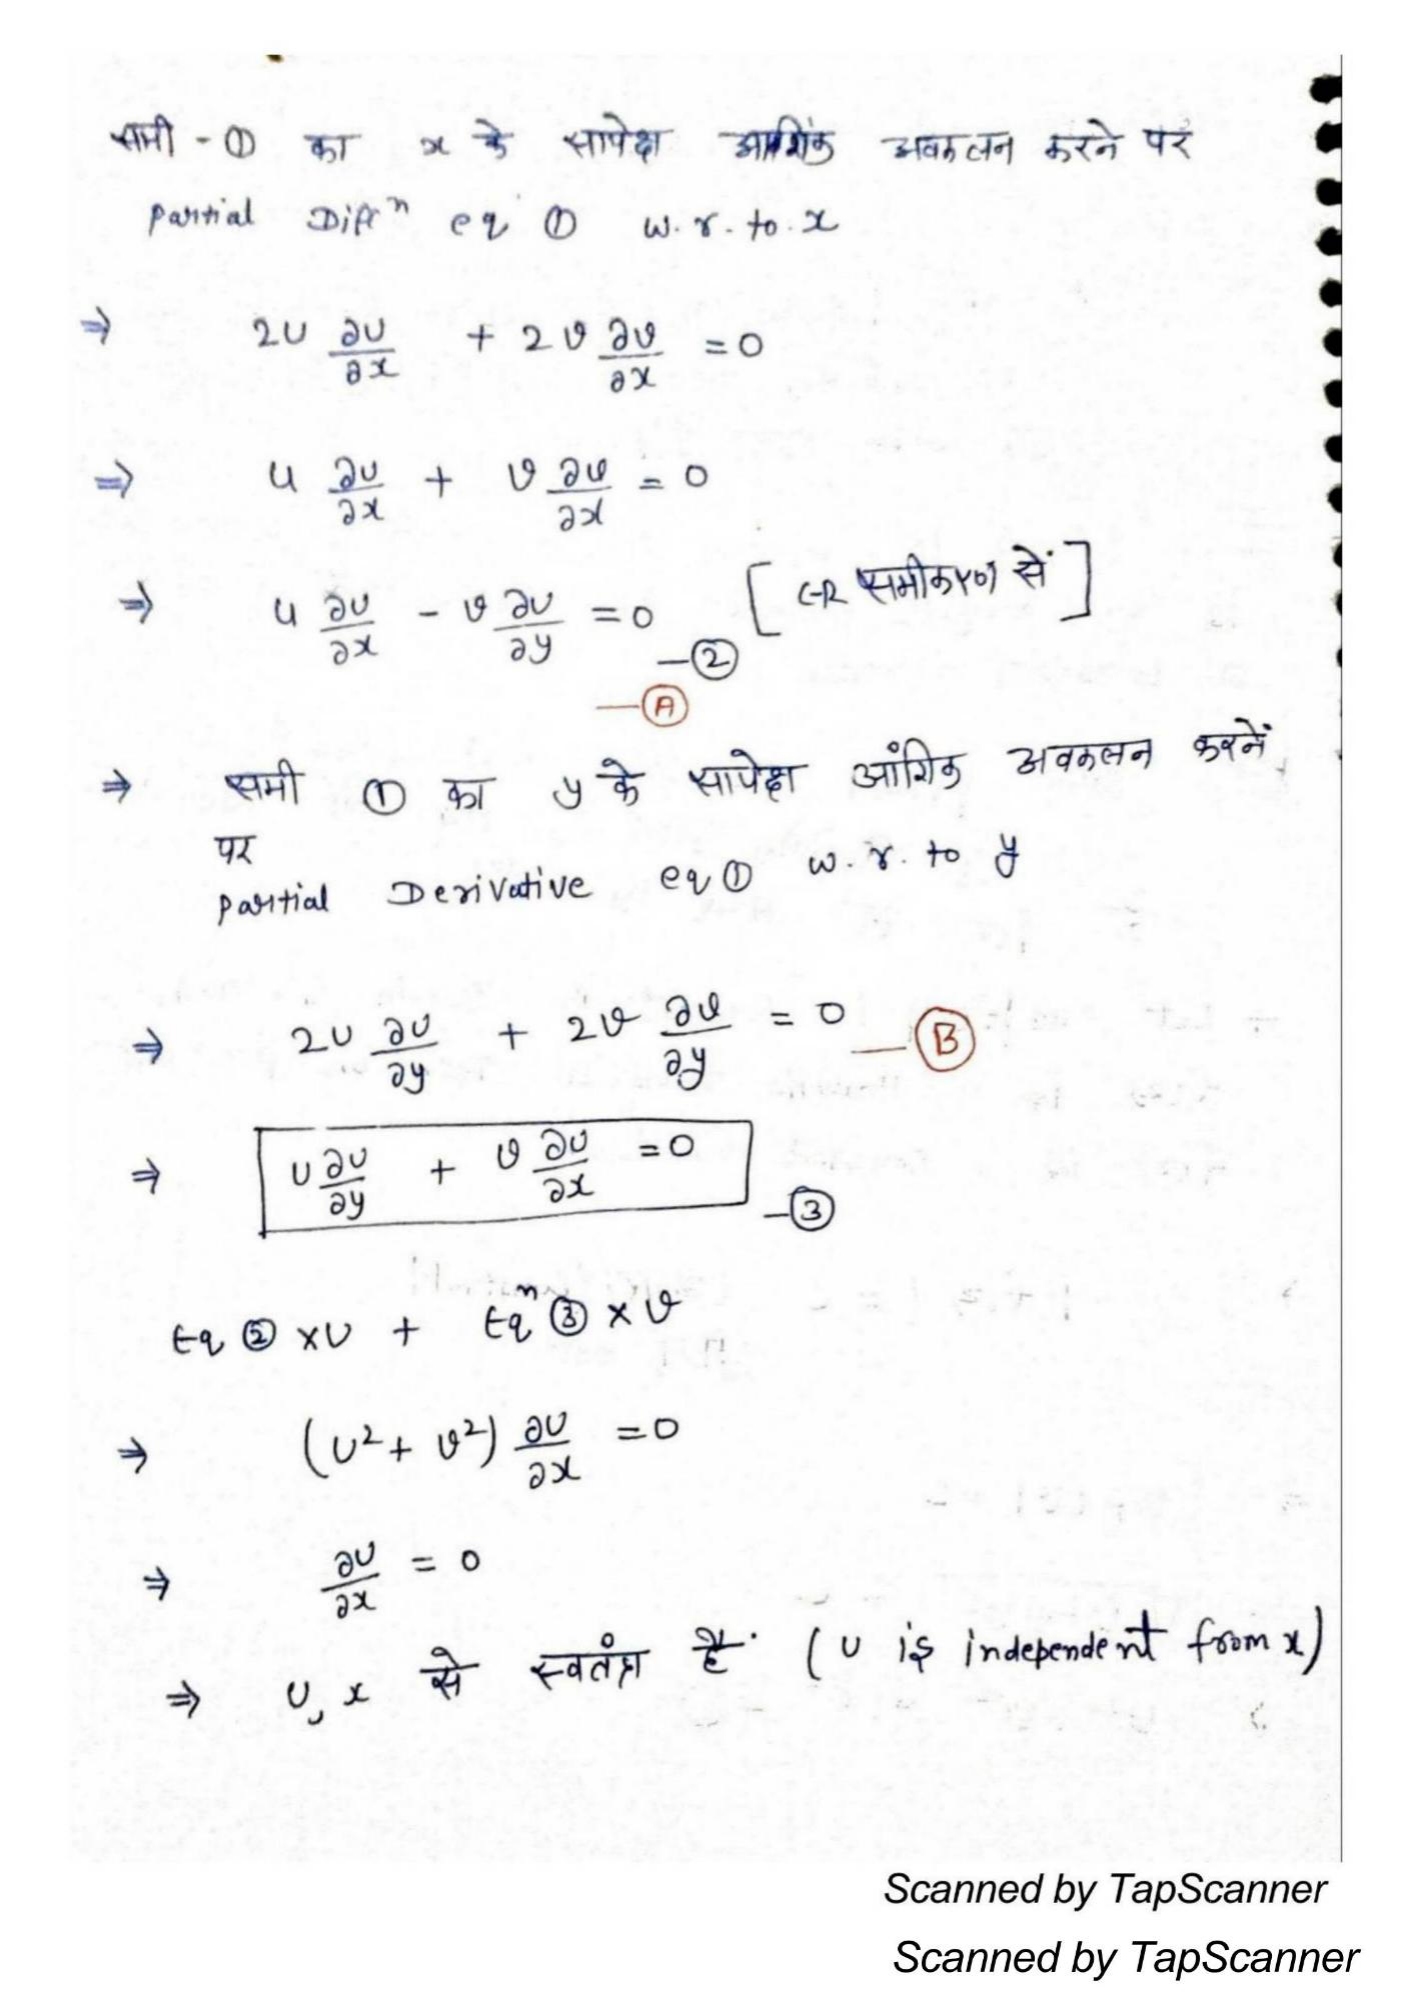 समी - ① का x के सापेक्ष आशिंक अवकलन करने पर
Partial Diffⁿ eq ① w.r.to.x
⇒ 2u ∂u/∂x + 2v ∂v/∂x = 0
⇒ u ∂u/∂x + v ∂v/∂x = 0
⇒ u ∂u/∂x - v ∂u/∂y = 0 [C-R समीकरण से] —②
—Ⓐ
⇒ समी ① का y के सापेक्ष आंशिक अवकलन करनें
पर
Partial Derivative eq ① w.r.to y
⇒ 2u ∂u/∂y + 2v ∂v/∂y = 0 —Ⓑ
⇒ u ∂u/∂y + v ∂u/∂x = 0 —③
Eq ② ×u + Eqⁿ ③ × v
⇒ (u² + v²) ∂u/∂x = 0
⇒ ∂u/∂x = 0
⇒ u, x से स्वतंत्र है. (u is independent from x)
Scanned by TapScanner
Scanned by TapScanner